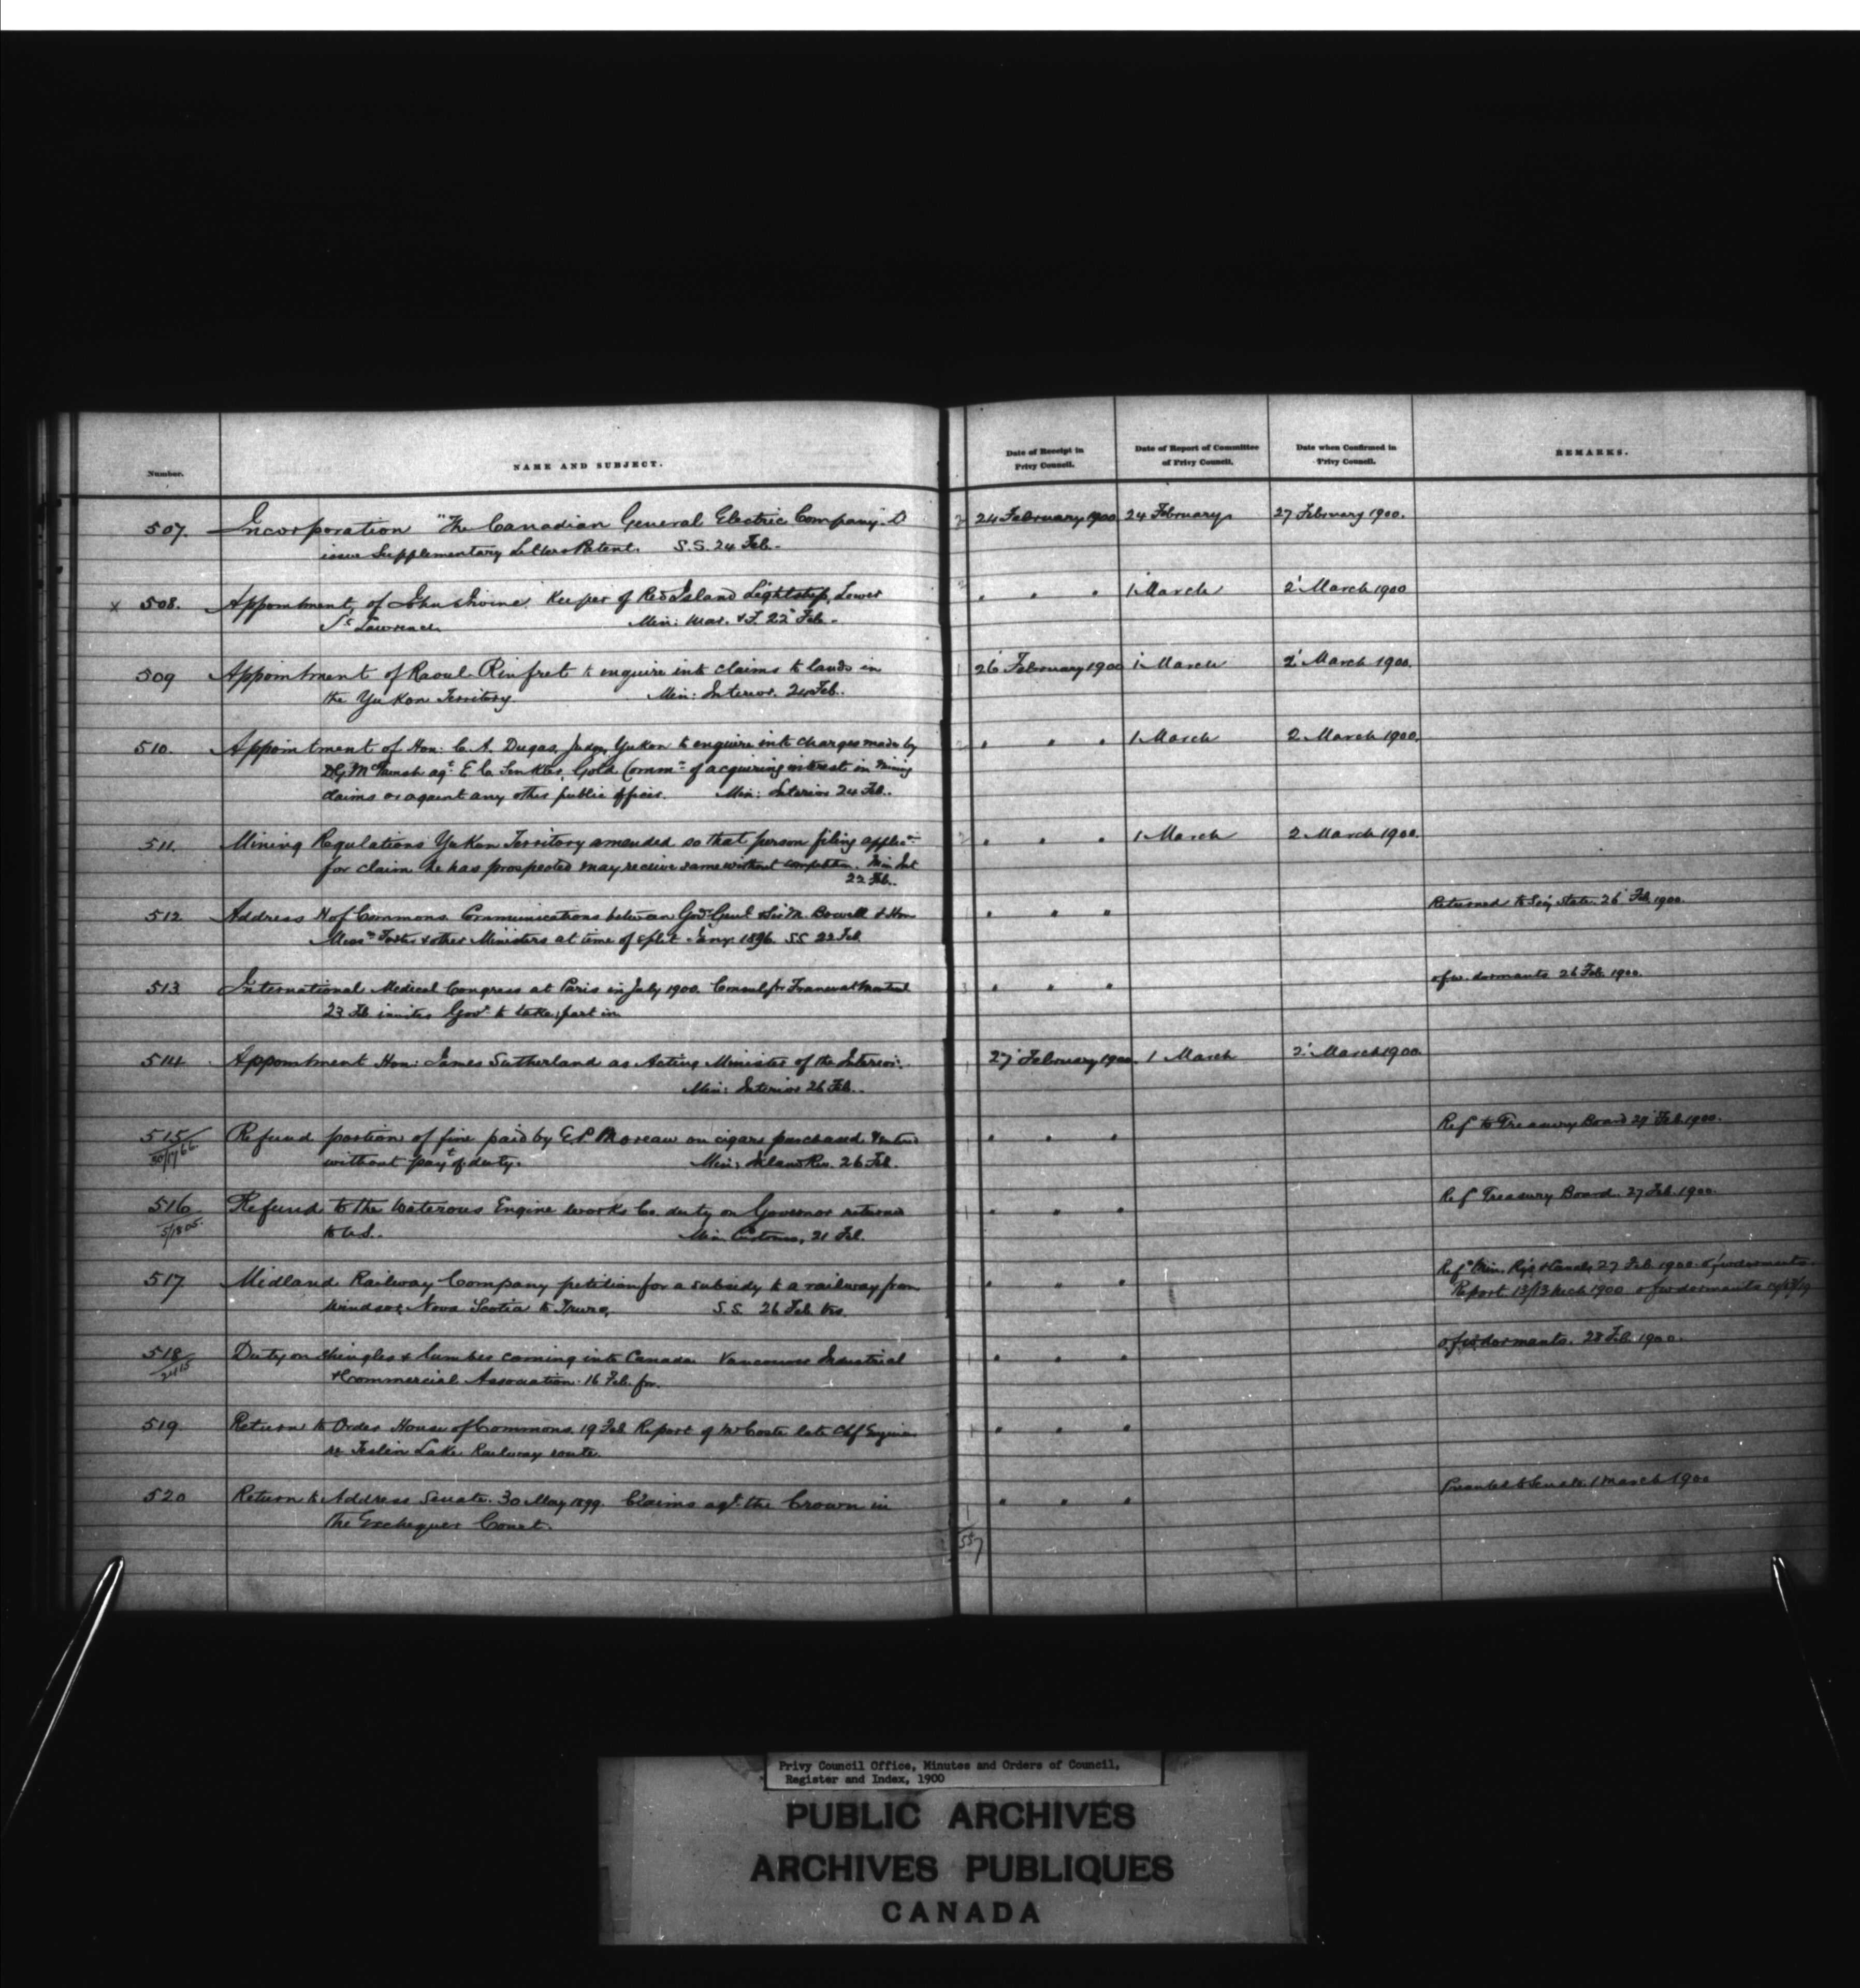 Number. NAME AND SUBJECT. Date of Receipt in Privy Council. Date of Report of Committee of Privy Council. Date when Confirmed in Privy Council. REMARKS.
507. Incorporation "The Canadian General Electric Company". D 24 February 1900 24 February 27 February 1900.
issue Supplementary Letters Patent. S.S. 24 Feb.
x 508. Appointment of John Irvine Keeper of Red Island Lightship, Lower " " " 1 March 2 March 1900
St Lawrence. Min: Mar. & F. 22 Feb.
509 Appointment of Raoul Rinfret to enquire into claims to lands in 26 February 1900 1 March 2 March 1900.
the Yukon Territory. Min: Interior. 24 Feb.
510. Appointment of Hon: C. A. Dugas, Judge, Yukon to enquire into charges made by " " " 1 March 2 March 1900.
agt E C Senkler, Gold Commr of acquiring interest in mining
claims or against any other public officer. Min: Interior 24 Feb.
511. Mining Regulations Yukon Territory amended so that person filing applicn " " " 1 March 2 March 1900.
for claim he has prospected may receive same without competition. Min Int
22 Feb.
512 Address H of Commons. Communications between Govr Genl & Sir M. Bowell & Hon " " " Returned to Secy State. 26 Feb 1900.
Messrs Foster & other Ministers at time of split Jany 1896. S.S. 22 Feb.
513 International Medical Congress at Paris in July 1900. Consul for France at Montreal " " " ofw. dormants 26 Feb. 1900.
23 Feb. invites Govt to take part in
514 Appointment Hon: James Sutherland as Acting Minister of the Interior. 27 February 1900. 1 March 2 March 1900
Min: Interior 26 Feb.
515 Refund portion of fine paid by E. P. Moreau on cigars purchased & entered " " " Ref to Treasury Board 27 Feb. 1900.
without payt of duty. Min: Inland Rev. 26 Feb.
516 Refund to the Waterous Engine Works Co. duty on Governor returned " " " Ref Treasury Board. 27 Feb. 1900.
to U.S. Min Customs, 21 Feb.
517 Midland Railway Company petition for a subsidy to a railway from " " " Ref Min. Rys & Canals 27 Feb. 1900. ofw dormants.
Windsor, Nova Scotia to Truro. S.S. 26 Feb. Report 12/13 Mch 1900 ofw dormants
518 Duty on shingles & lumber coming into Canada Vancouver Industrial " " " ofw dormants. 28 Feb. 1900.
2415 & Commercial Association. 16 Feb. for.
519 Return to Order House of Commons. 19 Feb. Report of Mr Coste late Chf Engineer " " "
re Teslin Lake Railway route.
520 Return to Address Senate. 30 May 1899. Claims agt the Crown in " " " Presented to Senate. 1 March 1900
the Exchequer Court.
557
Privy Council Office, Minutes and Orders of Council,
Register and Index, 1900
PUBLIC ARCHIVES
ARCHIVES PUBLIQUES
CANADA